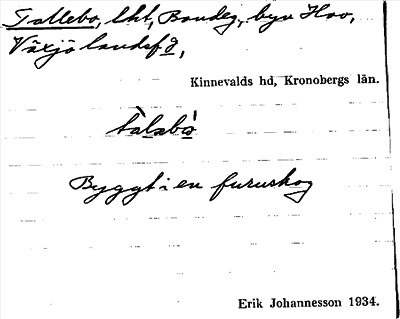 Tallebo, lht, Bondeg, byn Hov,
Växjö landsf g,
Kinnevalds hd, Kronobergs län.
Byggt i en furuskog
Erik Johannesson 1934.